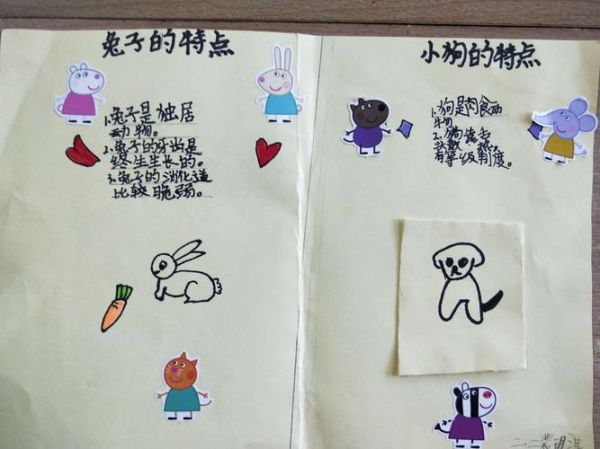 兔子的特点
1.兔子是独居
动物。
2.兔子的牙齿是
终生生长的。
3.兔子的消化道
比较脆弱。
小狗的特点
1.狗是肉食而
动物
2.狗靠舌
头散热。
有等级制度。
二.二